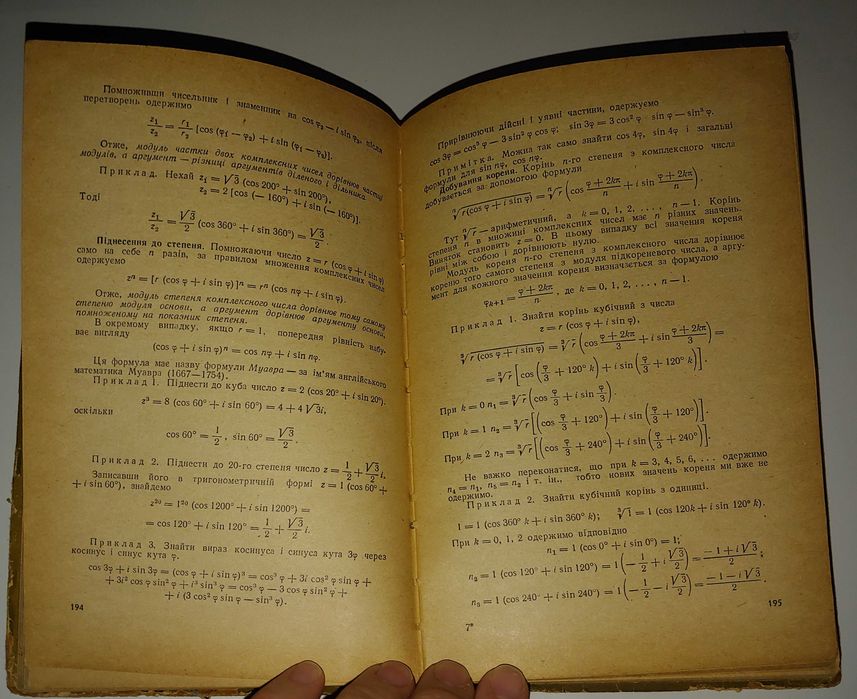 Помноживши чисельник і знаменник на cos φ₂ — i sin φ₂, після
перетворень одержимо
z₁/z₂ = r₁/r₂ [cos (φ₁ — φ₂) + i sin (φ₁ — φ₂)].
Отже, модуль частки двох комплексних чисел дорівнює частці
модулів, а аргумент — різниці аргументів діленого і дільника
Приклад. Нехай z₁ = √3 (cos 200° + sin 200°),
z₂ = 2 [cos (— 160°) + i sin (— 160°)].
Тоді
z₁/z₂ = √3/2 (cos 360° + i sin 360°) = √3/2.
Піднесення до степеня. Помножаючи число z = r (cos φ + i sin φ)
само на себе n разів, за правилом множення комплексних чисел
одержуємо
zⁿ = [r (cos φ + i sin φ)]ⁿ = rⁿ (cos nφ + i sin φ).
Отже, модуль степеня комплексного числа дорівнює тому самому
степеню модуля основи, а аргумент дорівнює аргументу основи,
помноженому на показник степеня.
В окремому випадку, якщо r = 1, попередня рівність набу-
ває вигляду
(cos φ + i sin φ)ⁿ = cos nφ + i sin nφ.
Ця формула має назву формули Муавра — за ім'ям англійського
математика Муавра (1667—1754).
Приклад 1. Піднести до куба число z = 2 (cos 20° + i sin 20°).
z³ = 8 (cos 60° + i sin 60°) = 4 + 4 √3i,
оскільки
cos 60° = 1/2, sin 60° = √3/2.
Приклад 2. Піднести до 20-го степеня число z = 1/2 + √3/2 i.
Записавши його в тригонометричній формі z = 1 (cos 60° +
+ i sin 60°), знайдемо
z²⁰ = 1²⁰ (cos 1200° + i sin 1200°) =
= cos 120° + i sin 120° = 1/2 + √3/2 i.
Приклад 3. Знайти вираз косинуса і синуса кута 3φ через
косинус і синус кута φ.
cos 3φ + i sin 3φ = (cos φ + i sin φ)³ = cos³ φ + 3i cos² φ sin φ +
+ 3i² cos φ sin² φ + i³ sin³ φ = cos³ φ — 3 cos φ sin² φ +
+ i (3 cos² φ sin φ — sin³ φ).
194
Прирівнюючи дійсні і уявні частини, одержуємо
cos 3φ = cos³ φ — 3 sin² φ cos φ; sin 3φ = 3 cos² φ sin φ — sin³ φ.
Примітка. Можна так само знайти cos 4φ, sin 4φ і загальні
формули для sin nφ, cos nφ.
Добування кореня. Корінь n-го степеня з комплексного числа
добувається за допомогою формули
ⁿ√r (cos φ + i sin φ) = ⁿ√r (cos (φ + 2kπ)/n + i sin (φ + 2kπ)/n).
Тут ⁿ√r — арифметичний, а k = 0, 1, 2, . . . , n — 1. Корінь
степеня n в множині комплексних чисел має n різних значень.
Виняток становить z = 0. В цьому випадку всі значення кореня
рівні між собою і дорівнюють нулю.
Модуль кореня n-го степеня з комплексного числа дорівнює
кореню того самого степеня з модуля підкореневого числа, а аргу-
мент для кожного значення кореня визначається за формулою
φₖ₊₁ = (φ + 2kπ)/n, де k = 0, 1, 2, . . . , n — 1.
Приклад 1. Знайти корінь кубічний з числа
z = r (cos φ + i sin φ),
³√r (cos φ + i sin φ) = ³√r (cos (φ + 2kπ)/3 + i sin (φ + 2kπ)/3) =
= ³√r [cos (φ/3 + 120° k) + i sin (φ/3 + 120° k)].
При k = 0 n₁ = ³√r (cos φ/3 + i sin φ/3).
При k = 1 n₂ = ³√r [(cos φ/3 + 120°) + i sin (φ/3 + 120°)].
При k = 2 n₃ = ³√r [(cos φ/3 + 240°) + i sin (φ/3 + 240°)].
Не важко переконатися, що при k = 3, 4, 5, 6, . . . одержимо
n₄ = n₁, n₅ = n₂ і т. ін., тобто нових значень кореня ми вже не
одержимо.
Приклад 2. Знайти кубічний корінь з одиниці.
1 = 1 (cos 360° k + i sin 360° k); ³√1 = 1 (cos 120k + i sin 120° k).
При k = 0, 1, 2 одержимо відповідно
n₁ = 1 (cos 0° + i sin 0°) = 1;
n₂ = 1 (cos 120° + i sin 120°) = 1 (— 1/2 + i √3/2) = (— 1 + i √3)/2;
n₃ = 1 (cos 240° + i sin 240°) = 1 (— 1/2 — i √3/2) = (— 1 — i √3)/2.
7*
195